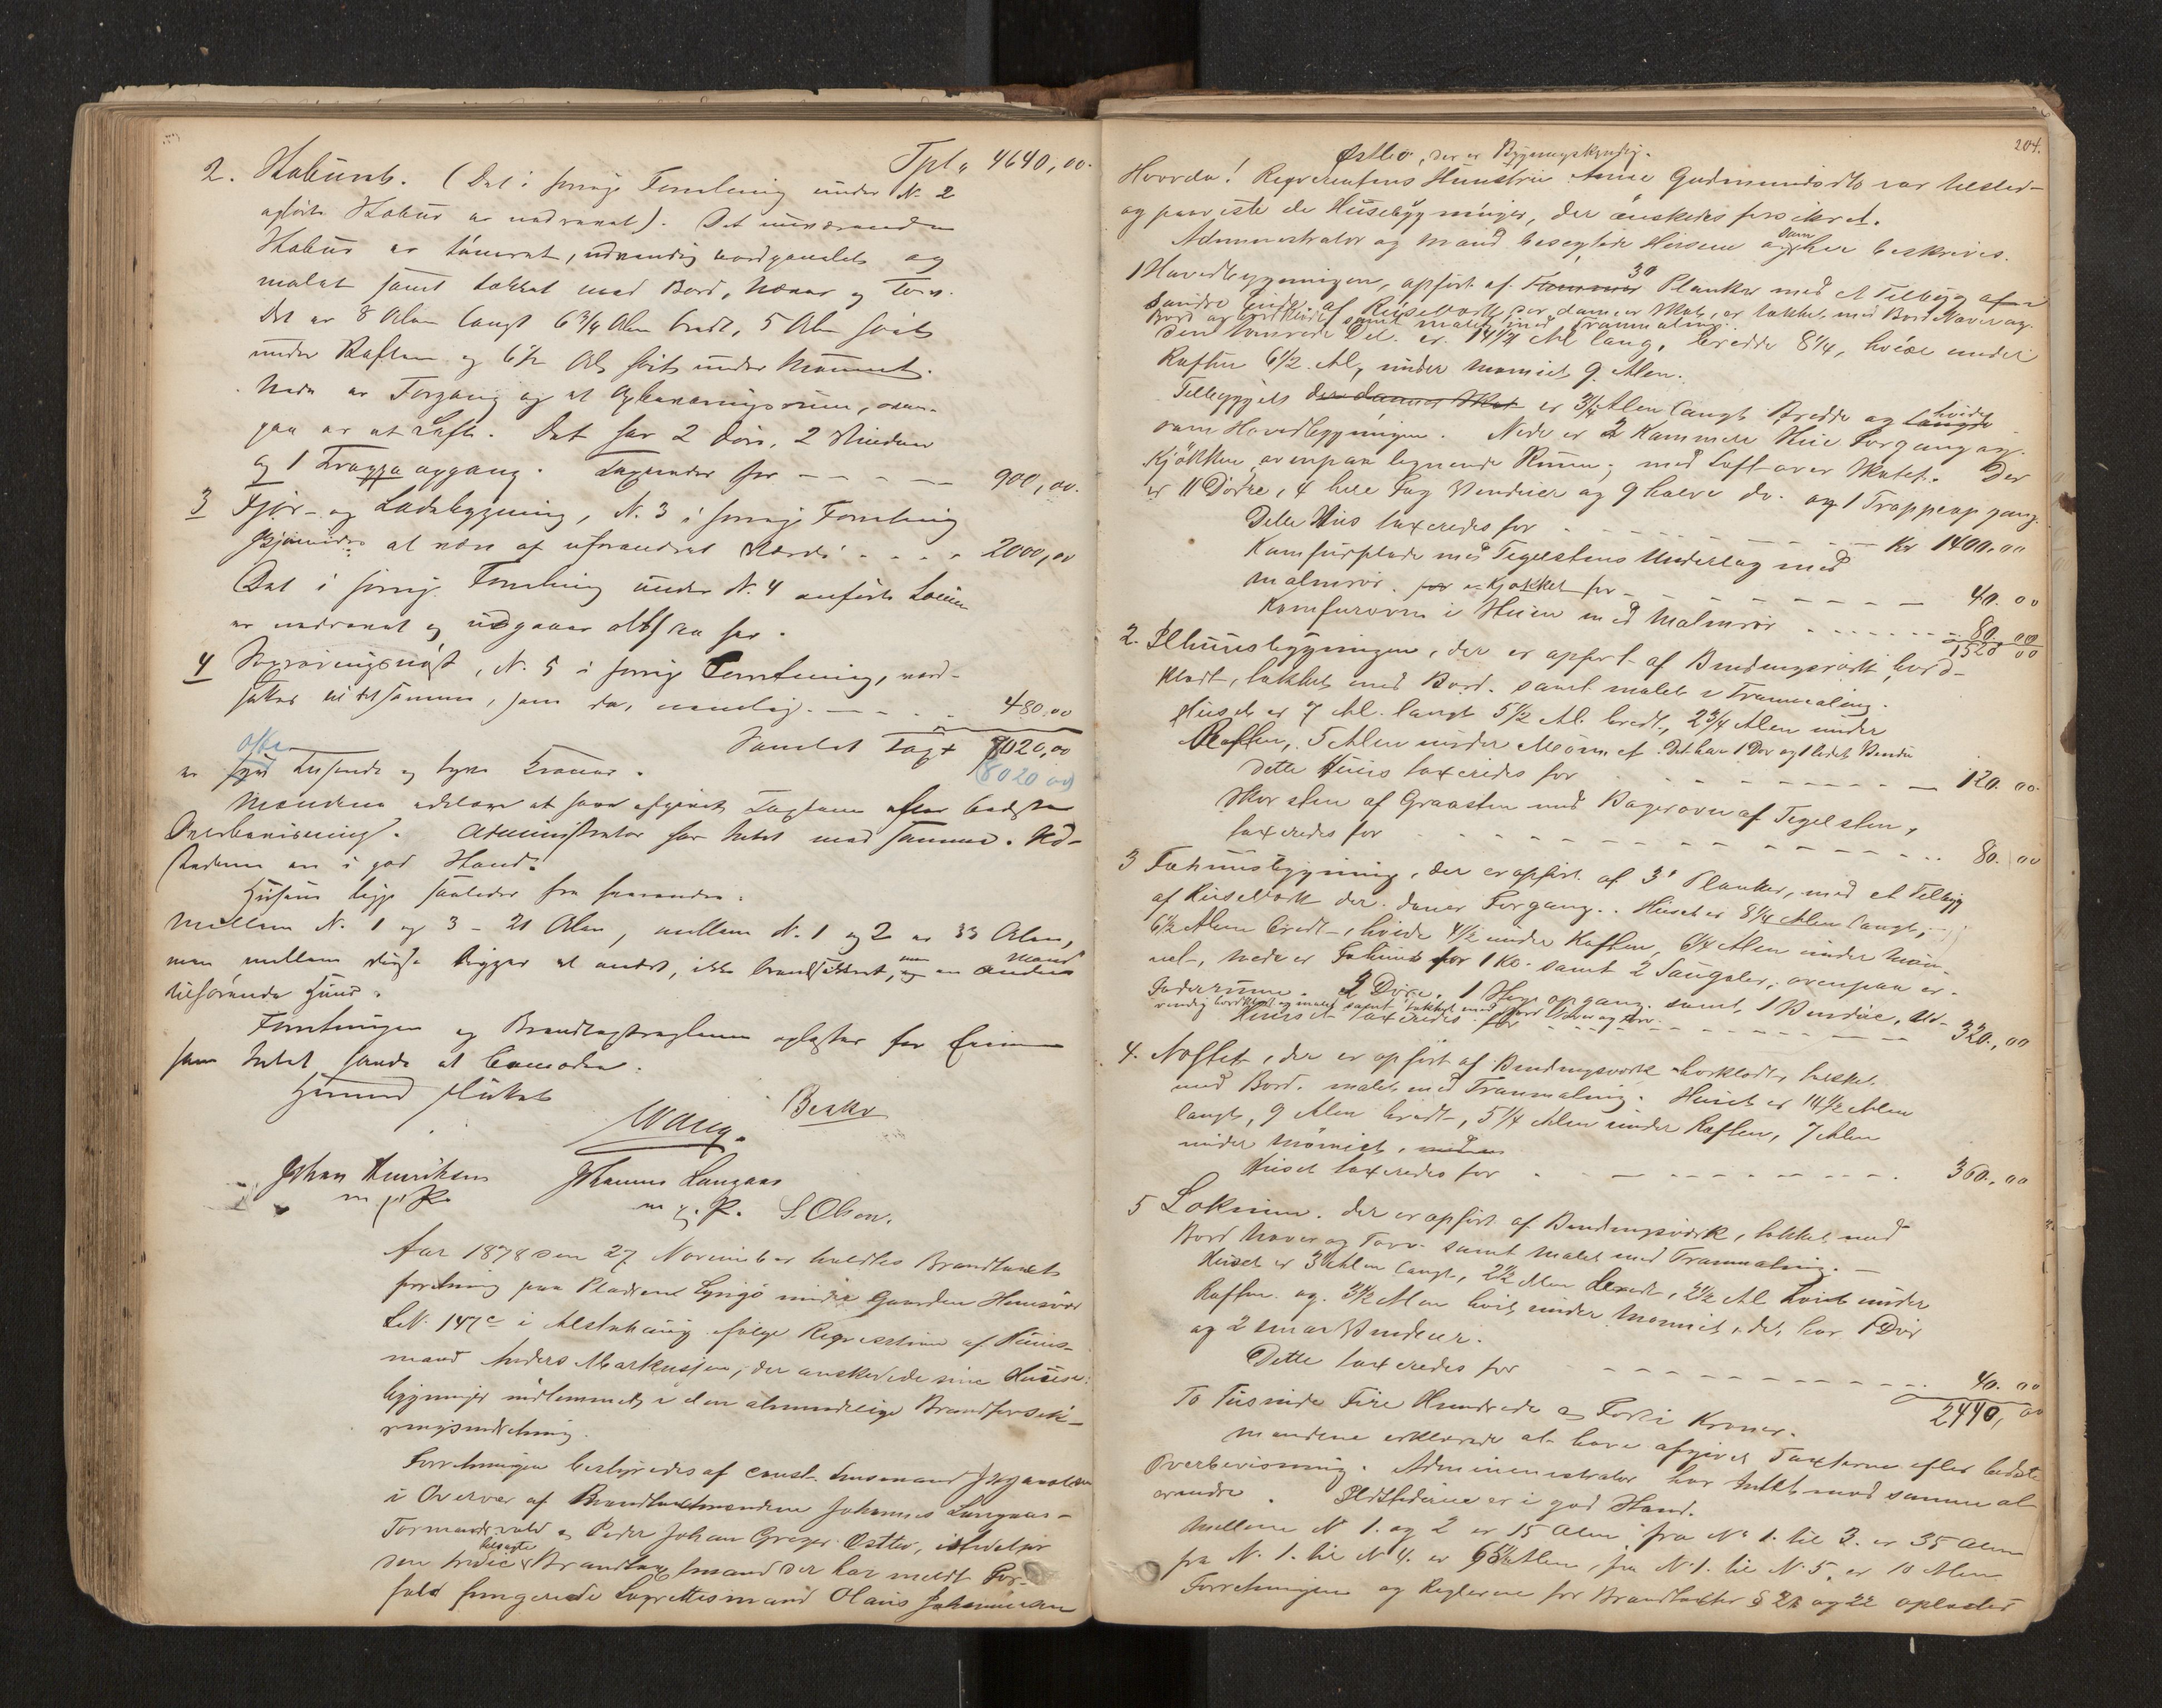 Tpt. 4640,00.
2. Staburet. (Det i forrige Forretning under N. 2
opførte Stabur er nedrevet). Det nuværende
Stabur er tømret, udvendig bordpanelet og
malet samt tækket med Bord, Næver og Torv.
Det er 8 Alen langt 6 3/4 Alen bredt, 5 Alen høit
under Raften og 6 1/2 Al. høit under Mønnet.
Nede er Forgang og et Opbevaringsrum, oven-
paa er et Loft. Det har 2 Døre, 2 Vinduer
og 1 Trappeopgang. Taxeredes for - - - - 900,00.
3 Fjøs- og Ladebygning, N. 3 i forrige Forretning
skjønnedes at være af uforandret Værdi - - - - 2000,00
Det i forrige Forretning under N. 4 anførte
er nedrevet og udgaar altsaa her.
4 N. 5 i forrige Forretning, værd-
sattes til det samme, som da, nemlig. - - - - 480.00
Samlet Taxt 7020,00
8020 00
otte
er syv tusende og tyve Kroner.
Mændene erklære at have afgivet Taxterne efter bedste
Overbeviisning. Administrator har Intet mod samme. Ild-
stederne ere i god Stand.
Husene ligge saaledes fra hverandre:
Mellem N. 1 og 3 - 21 Alen, mellem N. 1 og 2 er 33 Alen,
men mellem disse ligger et andet, ikke brandsikkret, en anden Mand
tilhørende Huus.
Forretningen og Brandtaxtreglerne oplæstes for Eieren
som Intet havde at bemærke.
Johan Henriksen
m. p. P.
Johannes Langaas
m. p. P. S. Olsen.
Aar 1878 den 27 November holdtes Brandtaxt
forretning paa Pladsene Lyngø under Gaarden
LN. 147c i Alstahoug ifølge Reqvisition af Huus-
mand Anders Markussen, der ønskede sine Huuse-
bygninger indlemmet i den almindelige Brandforsik-
ringsindretning.
Forretningen bestyredes af const. Lensmand
i Overvær af Brandtaxtmændene Johannes Langaas -
og Peder Johan Greger Østbø, istedetfor
den tredie Brandtaxtmand der har meldt For-
fald fungerede Lagrettesmand Olaus Johannesen
204.
Østbø, der er Bygningskyndig.
Hvorda! Reqvirentens Hustru Anne Gudmundsdtr var tilsted-
og paaviste de Husebygninger, der ønskedes forsikret.
Administrator og Mænd besigtede Husene som her beskrives.
1 Hovedbygningen, opført af 3" Planker med et Tilbyg af
søndre Ende af Reisverk der danner Skot, er tækket med Bord Næver og
Bord og bordklædt samt malet med Tranmaling.
Den tømrede Del. er 14 1/4 Al lang, bredde 8 1/4, høide under
Raften 6 1/2 Al, under mønnet 9 Alen.
Tilbygget der danner Skot er 3 1/4 Alen langt Bredde og høide
som Hovedbygningen. Nede er 2 Kammere Stue Forgang og
Kjøkken, ovenpaa lignende Rum; med Loft over Skotet. Der
er 11 Døre, 4 hele Fag Vinduer og 9 halve do. og 1 Trappeopgang.
Dette Hus taxeredes for - - - - Kr 1400.00
Komfurplade med Tegelstens Underlag med
malmrør. i Kjøkket for - - - - 40.00
Komfurovn i Stuen med Malmrør - - - - 80.00
1520 00
2. Ildhuusbygningen, der er opført af Bindingsværk bord-
klædt, tækket med Bord. samt malet i Tranmaling.
Huset er 7 Al. langt 5 1/2 Al. bredt, 2 3/4 Alen under
Raften, 5 Alen under Mønnet. Det har 1 Dør og 1 lidet Vindu
Dette Huus taxeredes for - - - - 120.00
Skorsten af Graasten med Bagerovn af Tegelsten,
taxeredes for - - - - 80.00
3 Fæhuusbygning, der er opført af 3" Planker, med et Tilbyg
af Reisverk der danner Forgang. Huset er 8 1/4 Alen langt,
6 1/2 Alen bredt, høide 4 1/2 under Raften, 6 1/4 Alen under Møn-
net, nede er Fæhuus for 1 Ko. samt 2 Saugaler, ovenpaa er
Foderrum. 2 Døre, 1 opgang. samt 1 Vindue, ud-
vendig bordklædt og malet samt tækket med Bord Næver og Torv.
Huuset taxeredes for - - - - 320.,00
4. Nøstet, der er opført af Bindingsværk bordklædt, tækket
med Bord. malet med Tranmaling. Huset er 14 1/2 Alen
langt, 9 Alen bredt, 5 1/4 Alen under Raften, 7 Alen
under Mønnet,
Huset taxeredes for - - - - 360.,00
5 Lokum. der er opført af Bindingsværk, tækket med
Bord Næver og Torv. samt malet med Tranmaling. -
Huset er 3 Alen langt, 2 1/2 Alen bredt, 2 1/2 Al høit under
Raften. og. 3 1/2 Alen høit under Mønnet, det har 1 Dør
og 2 smaa Vinduer.
Dette taxeredes for - - - - 40.00
2440,00
To Tusinde Fire Hundrede og Forti Kroner.
Mændene erklærede at have afgivet Taxterne efter bedste
Overbevisning. Administrator har Intet mod samme at
erindre. Ildstederne er i god Stand.
Mellem N 1. og 2 er 15 Alen fra N. 1. til 3. er 35 Alen
fra N. 1. til N 4. er Alen, fra N. 1. til N. 5. er 10 Alen
Forretningen og Reglerne for Brandtaxter § 21 og 22 oplæstes